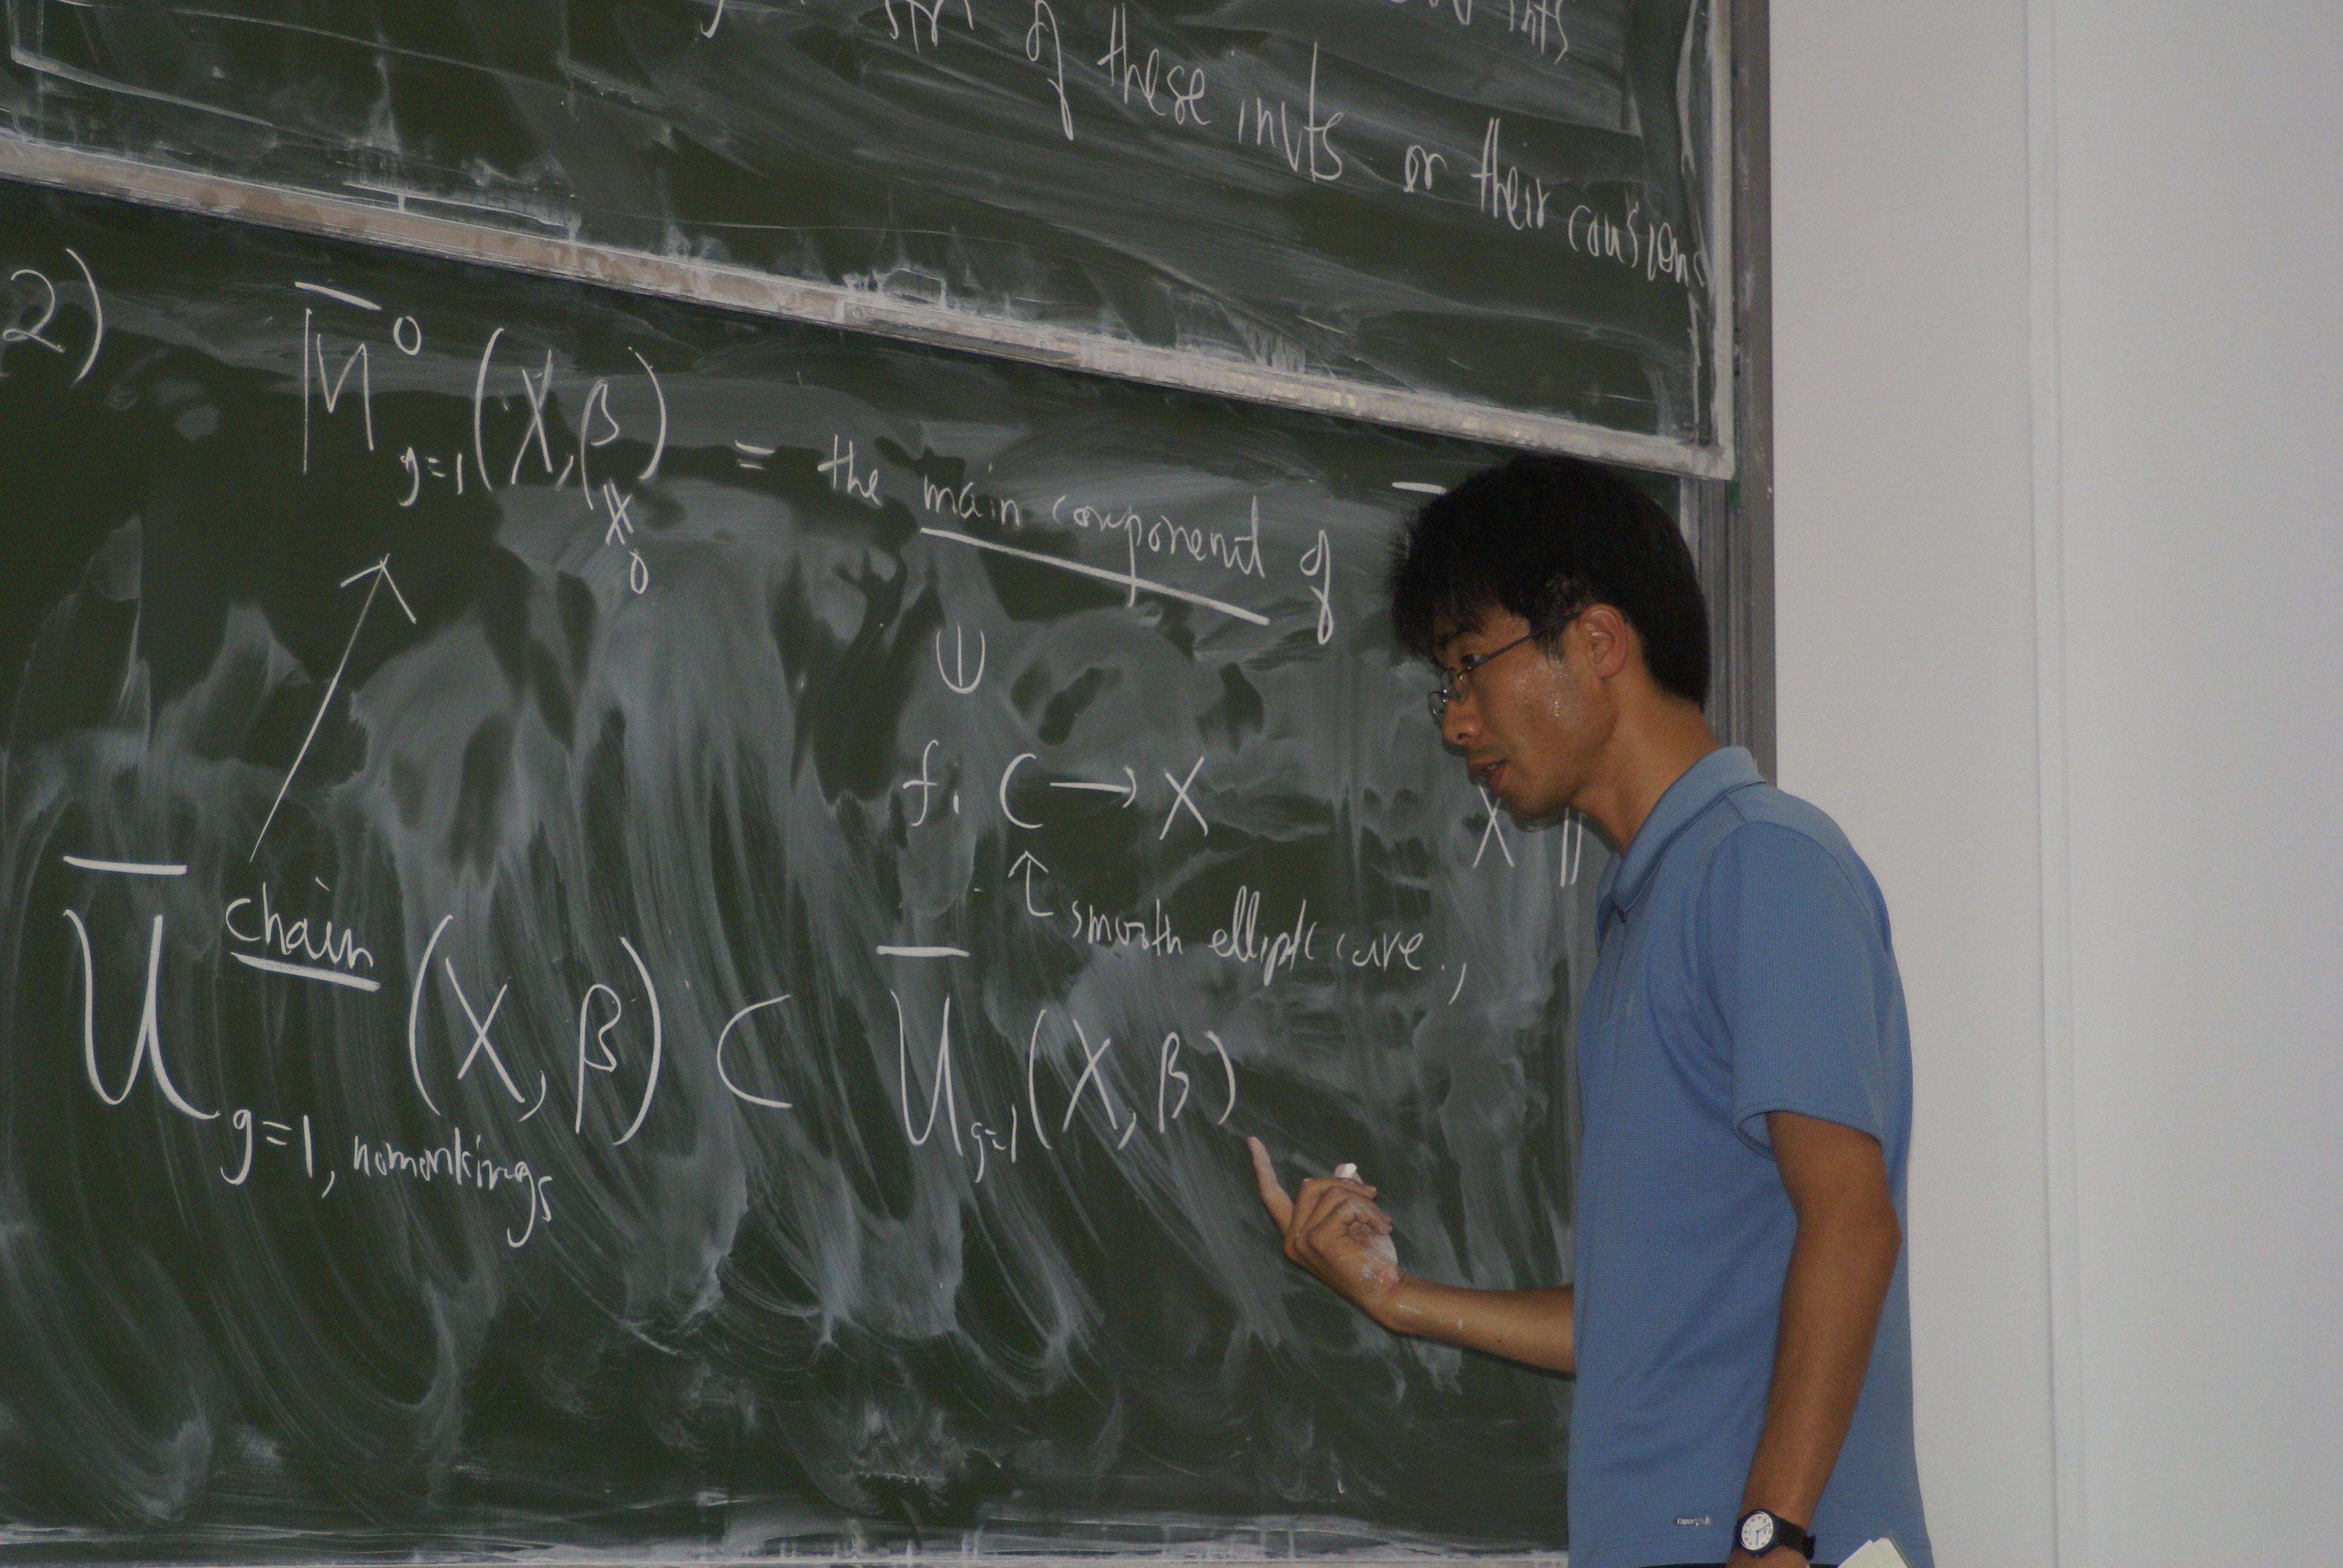 of these invts or their cousions
2) M̄⁰_{g=1}(X, β) = the main component of
β ≠ 0
f: C → X
↑ smooth elliptc curve.,
Ū^{chain}_{g=1, nomarkings}(X, β) ⊂ Ū_{g=1}(X, β)